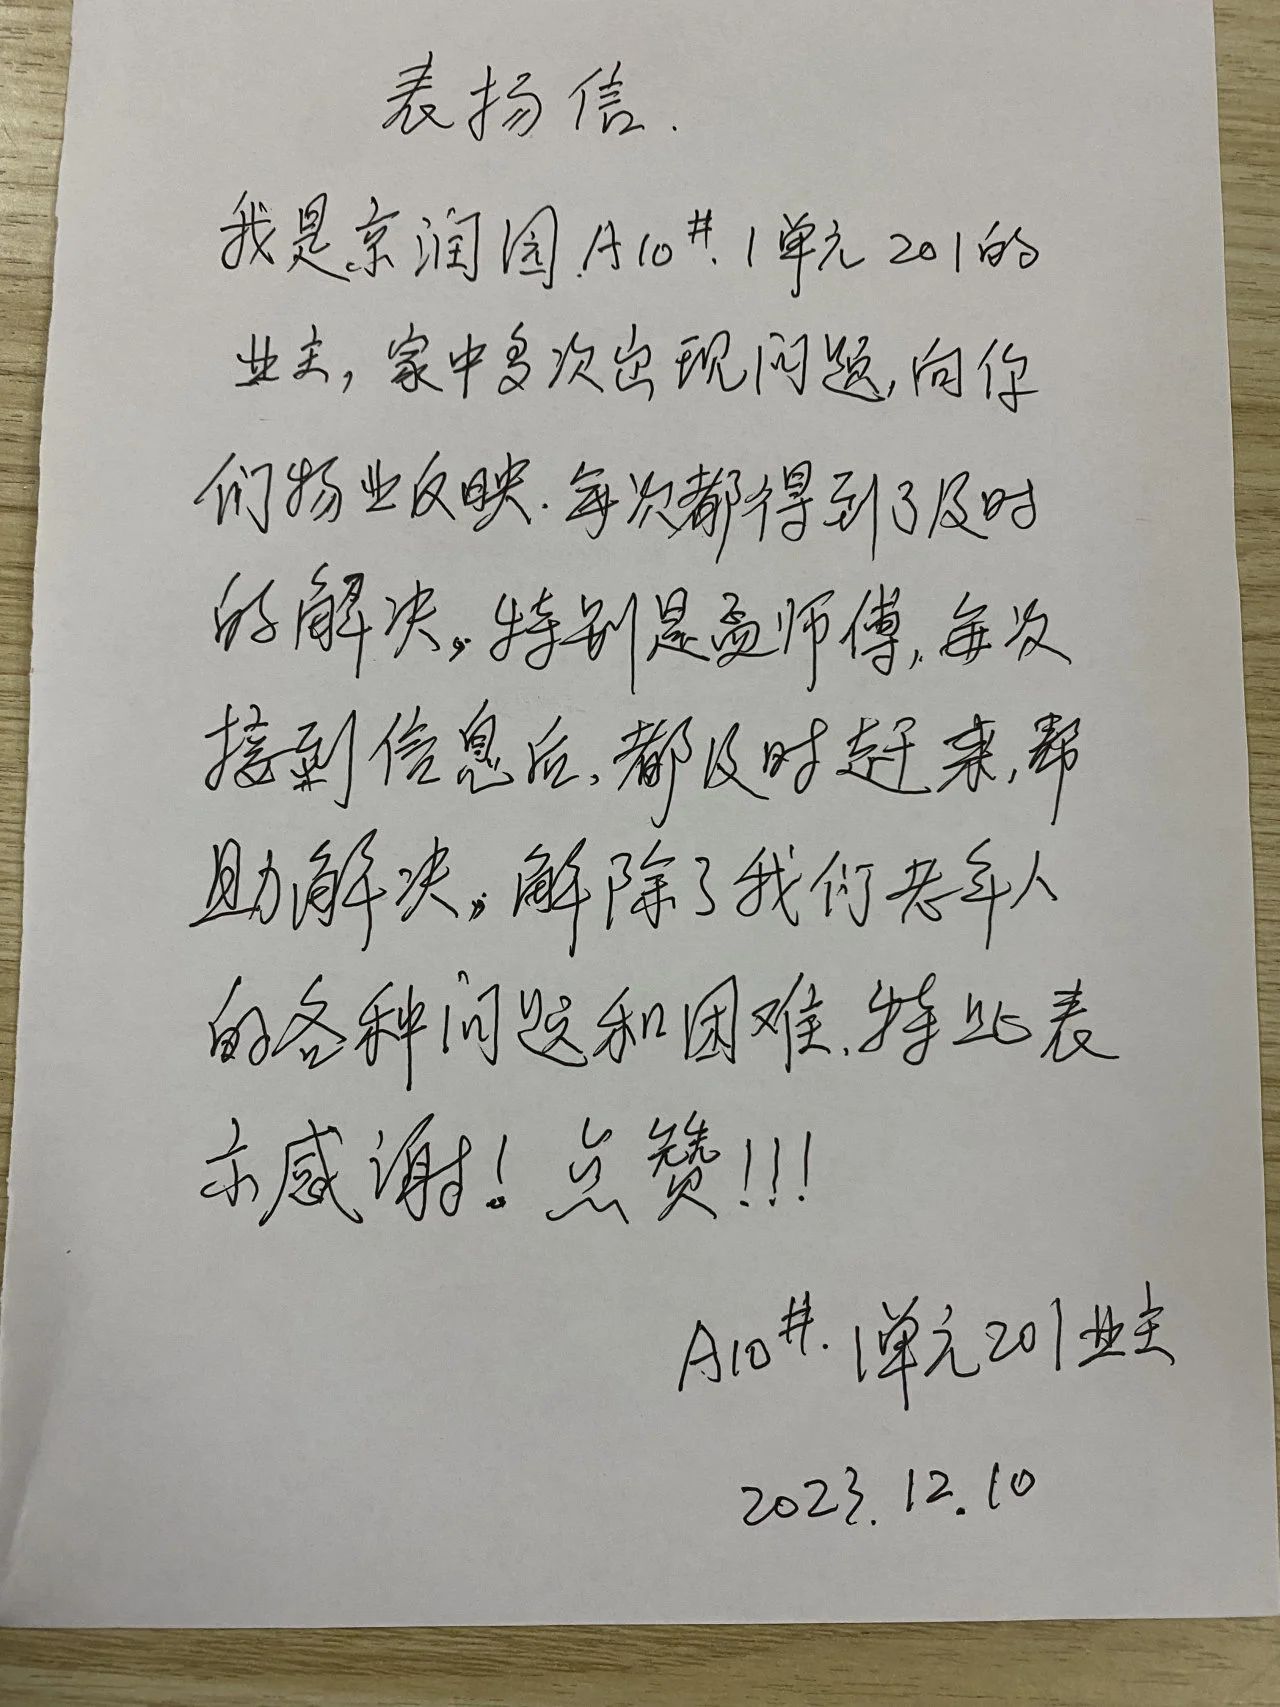 表扬信.
我是京润园.A10#.1单元201的
业主,家中多次出现问题,向你
们物业反映.每次都得到了及时
的解决。特别是孟师傅,每次
接到信息后,都及时赶来,帮
助解决。解除了我们老年人
的各种问题和困难.特此表
示感谢!点赞!!!
A10#.1单元201业主
2023.12.10